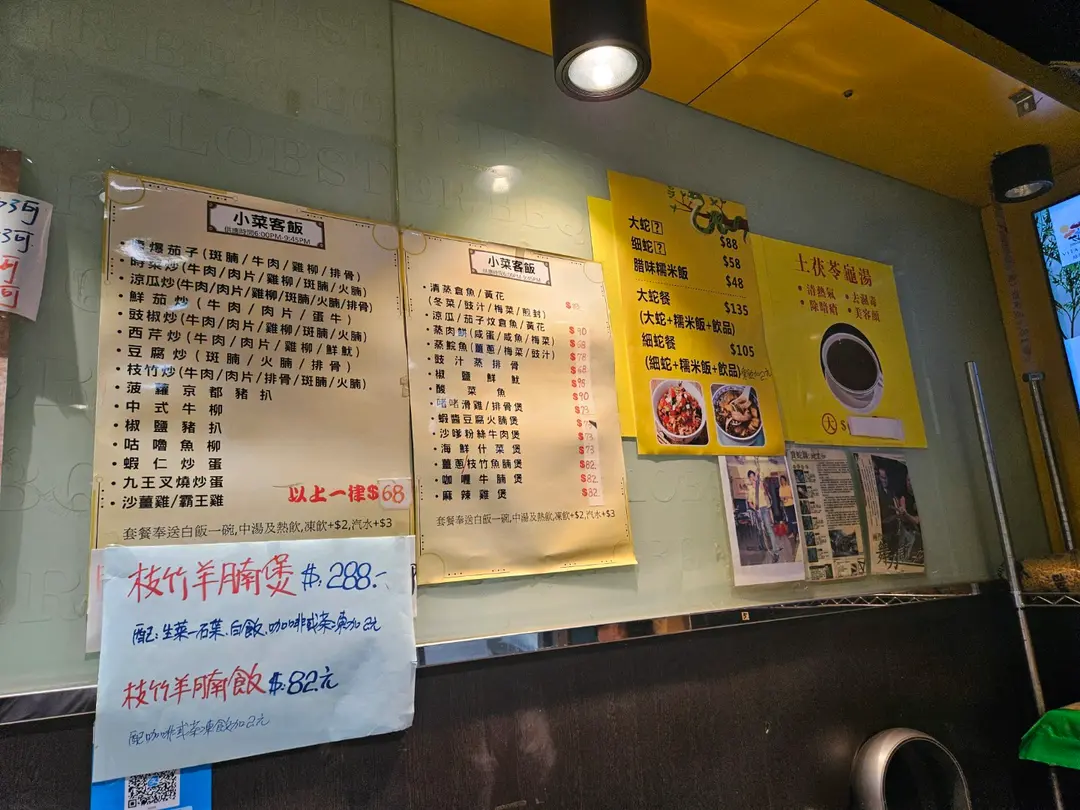 小菜客飯
供應時間6:00PM-9:45PM
爆茄子(斑腩/牛肉/雞柳/排骨)
時菜炒(牛肉/肉片/雞柳/斑腩/火腩)
涼瓜炒(牛肉/肉片/雞柳/斑腩/火腩/排骨)
鮮茄炒(牛肉/肉片/蛋牛)
豉椒炒(牛肉/肉片/雞柳/斑腩/火腩)
西芹炒(牛肉/肉片/雞柳/鮮魷)
豆腐炒(斑腩/火腩/排骨)
枝竹炒(牛肉/肉片/排骨/斑腩/火腩)
菠蘿京都豬扒
中式牛柳
椒鹽豬扒
咕嚕魚柳
蝦仁炒蛋
九王叉燒炒蛋
沙薑雞/霸王雞
以上一律$68
套餐奉送白飯一碗,中湯及熱飲,凍飲+$2,汽水+$3
小菜客飯
供應時間6:00PM-9:45PM
清蒸倉魚/黃花
(冬菜/豉汁/梅菜/煎封)
涼瓜/茄子炆倉魚/黃花 $90
蒸肉餅(咸蛋/咸魚/梅菜) $68
蒸鯇魚(薑蔥/梅菜/豉汁) $78
豉汁蒸排骨 $68
椒鹽鮮魷
酸菜魚 $90
啫啫滑雞/排骨煲
蝦醬豆腐火腩煲
沙嗲粉絲牛肉煲 $73
海鮮什菜煲 $73
薑蔥/枝竹魚腩煲 $82
咖喱牛腩煲 $82
麻辣雞煲 $82
套餐奉送白飯一碗,中湯及熱飲,凍飲+$2,汽水+$3
大蛇 $88
細蛇 $58
臘味糯米飯 $48
大蛇餐 $135
(大蛇+糯米飯+飲品)
細蛇餐 $105
(細蛇+糯米飯+飲品)
土茯苓龜湯
清熱氣
去濕毒
除暗瘡
美容顏
大 $
枝竹羊腩煲 $288.-
配:生菜一石葉、白飯、咖啡或茶凍加2元
枝竹羊腩飯 $82元
配咖啡或茶凍飲加2元